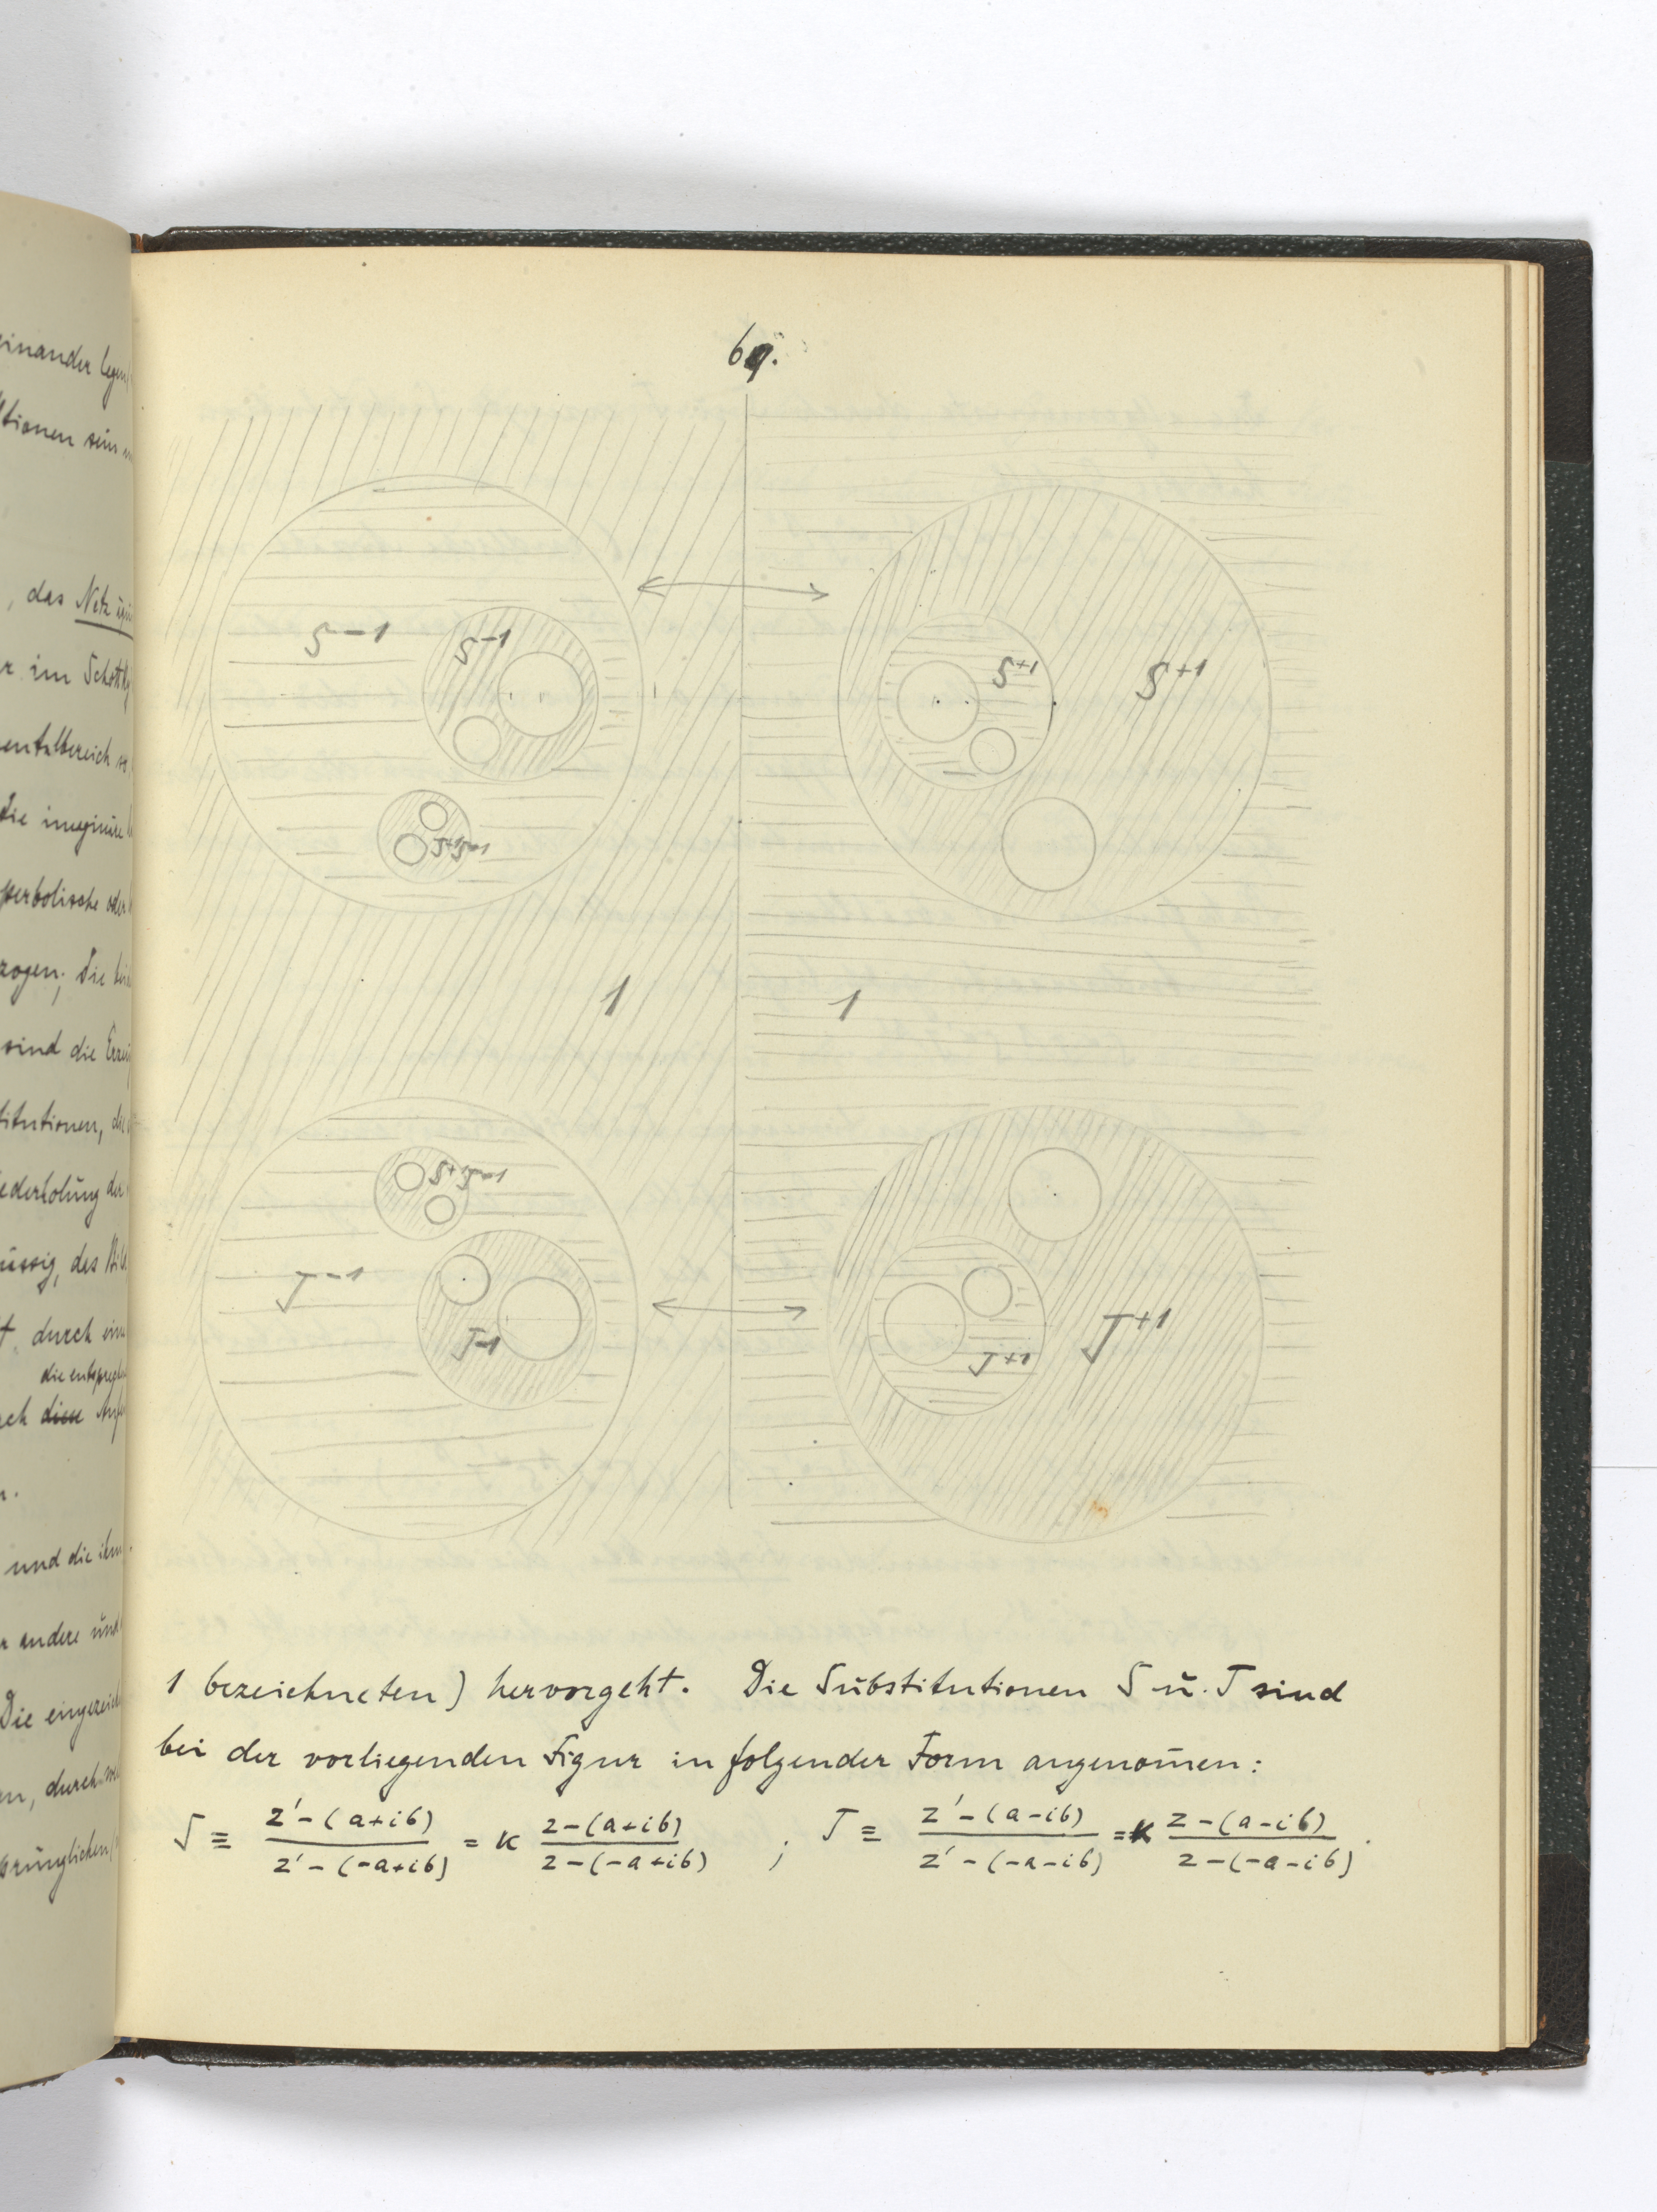 einander legen
tionen sein
, das Netz
r im Schottky
entalbereich
die imaginäre
perbolische oder
zogen; die
sind die
titutionen, die
ederholung der
üssig, des
t, durch eine
die entsprechen
ch diese
n.
und die ihm
andere und
Die eingezeich
n, durch
sprünglichen
69.
S−1
S−1
S+1
S+1
1
1
T−1
T−1
T+1
T+1
1 bezeichneten) hervorgeht. Die Substitutionen S u. T sind
bei der vorliegenden Figur in folgender Form angenom̄en:
S ≡ z'−(a+ib) / z'−(−a+ib) = κ z−(a+ib) / z−(−a+ib) ; T ≡ z'−(a−ib) / z'−(−a−ib) = κ z−(a−ib) / z−(−a−ib) .